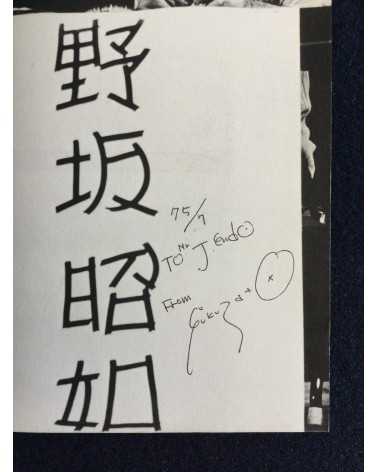 野坂昭如
75/7
TO Mr J. Endo
From